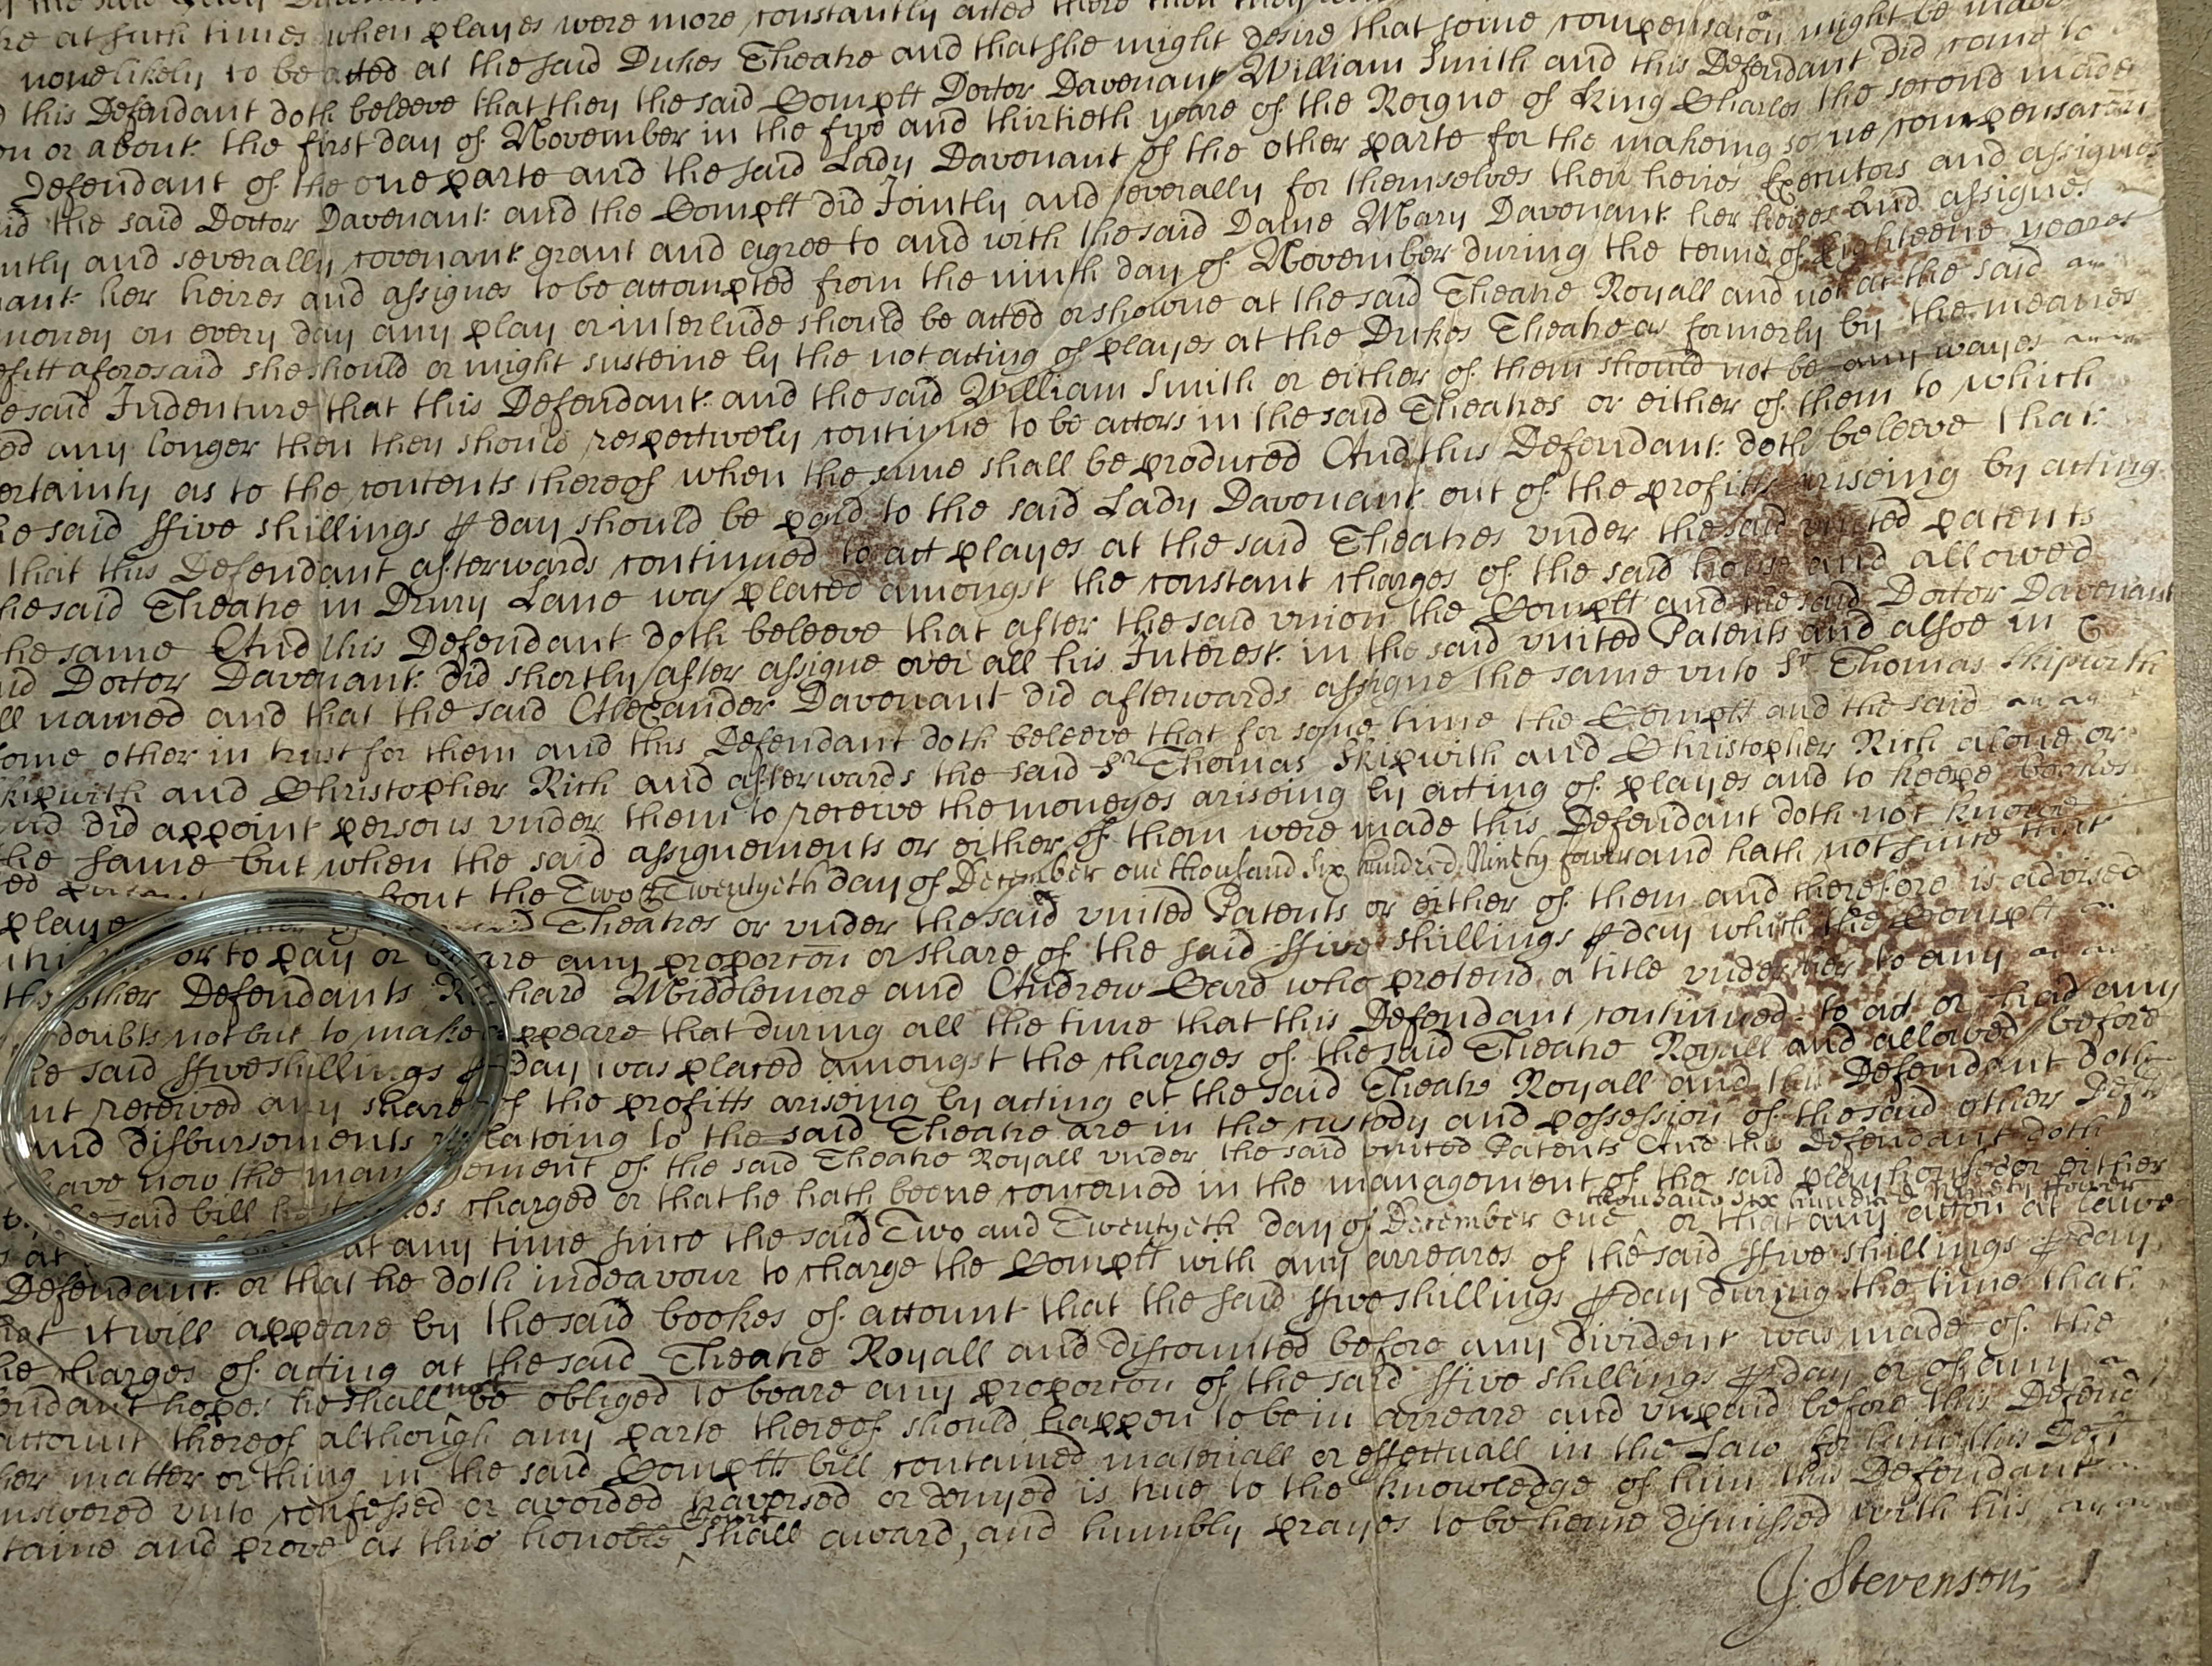 at such times when playes were more constantly acted there then they
none likely to be acted at the said Dukes Theatre and that she might desire that some compensacon might be made
this Defendant doth beleeve that they the said Complt Doctor Davenant William Smith and this Defendant did come to
on or about the first day of November in the five and thirtieth yeare of the Reigne of King Charles the second made
Defendant of the one parte and the said Lady Davenant of the other parte for the makeing some compensacon
the said Doctor Davenant and the Complt did Jointly and severally for themselves their heires Executors and assignes
and severally covenant grant and agree to and with the said Dame Mary Davenant her heires and assignes
her heires and assignes to be accompted from the ninth day of November during the terme of Eighteene yeares
money on every day any play or interlude should be acted or showne at the said Theatre Royall and not at the said
aforesaid she should or might susteine by the not acting of playes at the Dukes Theatre as formerly by the meanes
said Indenture that this Defendant and the said William Smith or either of them should not be any wayes
any longer then they should respectively continue to be actors in the said Theatres or either of them to which
certainty as to the contents thereof when the same shall be produced And this Defendant doth beleeve that
he said ffive shillings ⅌ day should be paid to the said Lady Davenant out of the profitts ariseing by acting
that this Defendant afterwards continued to act playes at the said Theatres under the said united patents
he said Theatre in Drury Lane was placed amongst the constant charges of the said house and allowed
the same And this Defendant doth beleeve that after the said union the Complt and the said Doctor Davenant
Doctor Davenant did shortly after assigne over all his Interest in the said united Patents and alsoe in
named and that the said Alexander Davenant did afterwards assigne the same unto Sr Thomas Skipwith
some other in trust for them and this Defendant doth beleeve that for some time the Complt and the said
Skipwith and Christopher Rich and afterwards the said Sr Thomas Skipwith and Christopher Rich alone or
did appoint persons under them to receive the moneyes ariseing by acting of playes and to keepe bookes
the same but when the said assignements or either of them were made this Defendant doth not know
about the Two & Twentyeth day of December one thousand Six hundred Ninety fower and hath not since that
playe Theatres or under the said united Patents or either of them and therefore is advised
or to pay or beare any proporcon or share of the said ffive shillings ⅌ day which the Complt
other Defendants Richard Middlemore and Andrew Card who pretend a title under her to any
doubts not but to make appeare that during all the time that this Defendant continued to act or had any
he said ffive shillings ⅌ day was placed amongst the charges of the said Theatre Royall and allowed before
received any share of the profitts ariseing by acting at the said Theatre Royall and this Defendant doth
and disbursements relateing to the said Theatre are in the custody and possession of the said other Defts
have now the management of the said Theatre Royall under the said united Patents And this Defendant doth
the said bill charged or that he hath beene concerned in the management of the said playhouses or either
at any time since the said Two and Twentyeth day of December one ^thousand six hundred ninety ffower or that any accon at lawe
Defendant or that he doth indeavour to charge the Complt with any arreares of the said ffive shillings ⅌ day
it will appeare by the said bookes of account that the said ffive shillings ⅌ day during the time that
he charges of acting at the said Theatre Royall and discounted before any divident was made of the
hopes he shall ^not be obliged to beare any proporcon of the said ffive shillings ⅌ day or of any
account thereof although any parte thereof should happen to be in arreare and unpaid before this Defend
matter or thing in the said Complts bill contained materiall or effectuall in the Law for him this Deft
unto confessed or avoided traversed or denyed is true to the knowledge of him this Defendant
and prove as this honoble ^Court shall award, and humbly prayes to be hence dismissed with his
J. Stevenson